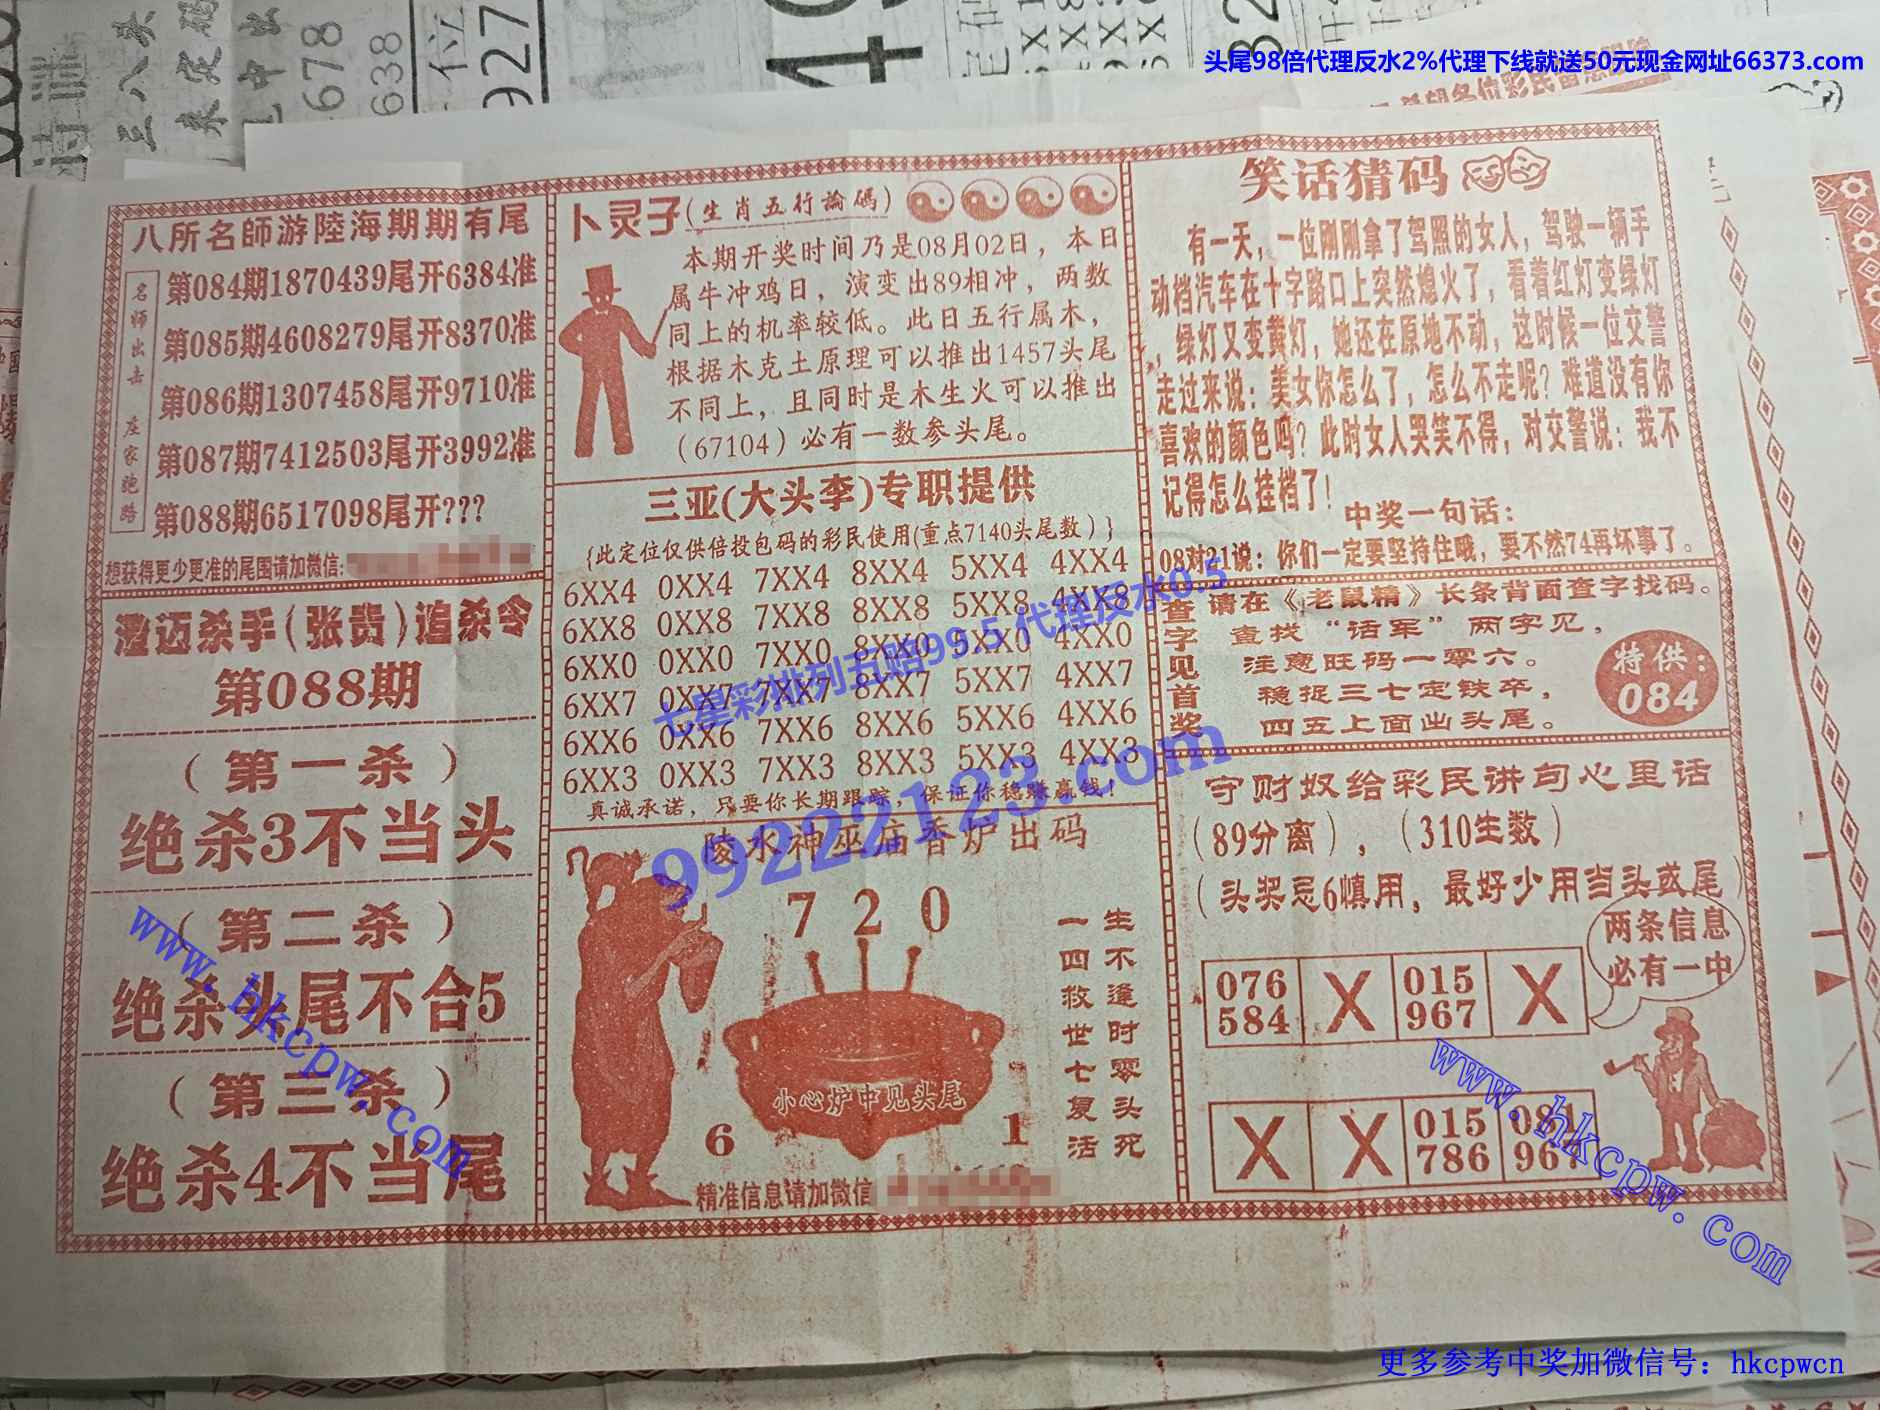 头尾98倍代理反水2%代理下线就送50元现金网址66373.com
678
638
927
八所名師游陸海期期有尾
名师出击 庄家跑路
第084期1870439尾开6384准
第085期4608279尾开8370准
第086期1307458尾开9710准
第087期7412503尾开3992准
第088期6517098尾开???
想获得更少更准的尾围请加微信:
澄迈杀手(张贵)追杀令
第088期
(第一杀)
绝杀3不当头
(第二杀)
绝杀头尾不合5
(第三杀)
绝杀4不当尾
卜灵子(生肖五行論碼)
本期开奖时间乃是08月02日，本日
属牛冲鸡日，演变出89相冲，两数
同上的机率较低。此日五行属木，
根据木克土原理可以推出1457头尾
不同上，且同时是木生火可以推出
(67104)必有一数参头尾。
三亚(大头李)专职提供
{此定位仅供倍投包码的彩民使用(重点7140头尾数)}
6XX4 0XX4 7XX4 8XX4 5XX4 4XX4
6XX8 0XX8 7XX8 8XX8 5XX8 4XX8
6XX0 0XX0 7XX0 8XX0 5XX0 4XX0
6XX7 0XX7 7XX7 8XX7 5XX7 4XX7
6XX6 0XX6 7XX6 8XX6 5XX6 4XX6
6XX3 0XX3 7XX3 8XX3 5XX3 4XX3
真诚承诺，只要你长期跟踪，保证你稳赚赢钱！
陵水神巫庙香炉出码
7 2 0
小心炉中见头尾
6 1
生不逢时零头死
一四救世七复活
精准信息请加微信
笑话猜码
有一天，一位刚刚拿了驾照的女人，驾驶一辆手
动档汽车在十字路口上突然熄火了，看着红灯变绿灯
，绿灯又变黄灯，她还在原地不动，这时候一位交警
走过来说：美女你怎么了，怎么不走呢？难道没有你
喜欢的颜色吗？此时女人哭笑不得，对交警说：我不
记得怎么挂档了！
中奖一句话：
08对21说：你们一定要坚持住哦，要不然74再坏事了。
查字见首奖
请在《老鼠精》长条背面查字找码。
查找“话军”两字见，
注意旺码一零六。
稳捉三七定铁卒，
四五上面出头尾。
特供：
084
守财奴给彩民讲句心里话
(89分离)，(310生数)
(头奖忌6慎用，最好少用当头或尾)
两条信息
必有一中
076 X 015 X
584 967
X X 015 081
786 967
七星彩排列五赔99.5 代理反水0.5
99222123.com
www.hkcpw.com
www.hkcpw.com
更多参考中奖加微信号：hkcpwcn